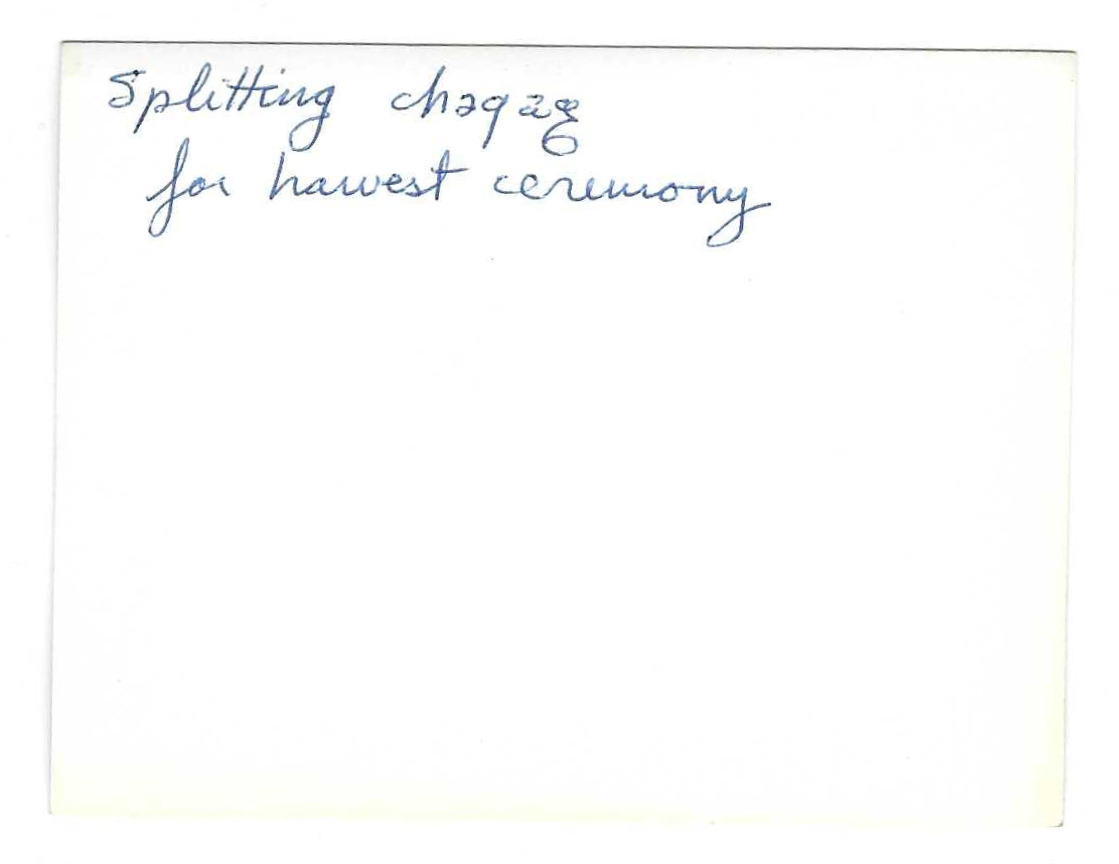 Splitting
for harvest ceremony